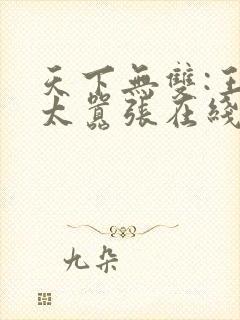 天下無雙:王
太囂張在綫
九朵